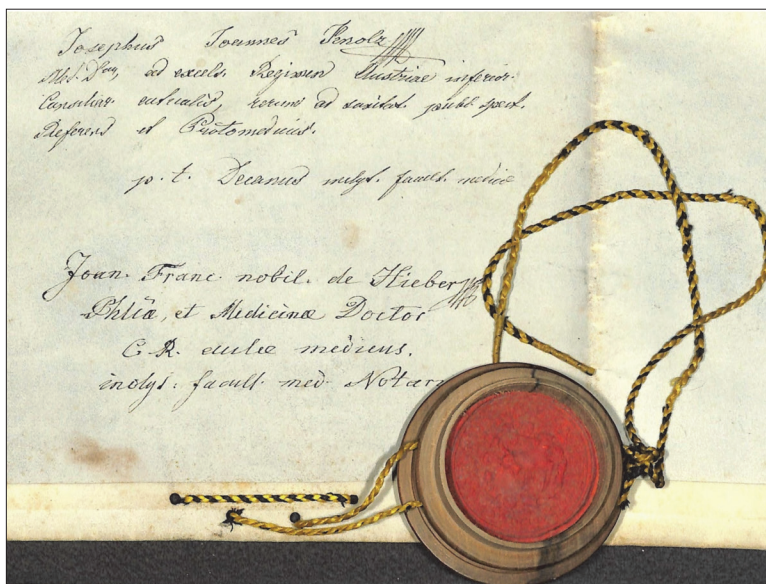 Josephus Joannes Knolz
Med. Doctor, ad excels. Regimen Austriae inferior.
Consiliar. rerum ad sanitat. publ. spect.
Referens et Protomedicus.
p. t. Decanus inclyt. facult. medicæ
Joan. Franc. nobil. de Hieber
Phliæ, et Medicinæ Doctor
C. R. aulæ medicus.
inclyt. facult. med. Notar